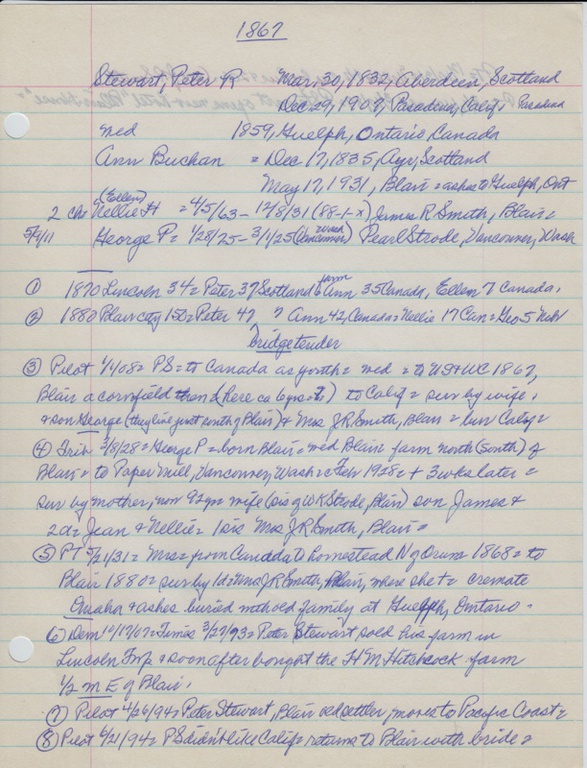 1867
Stewart, Peter R Mar, 30, 1832, Aberdeen, Scotland
Dec 29, 1907, Pasadena, Calif, Pasadena
med 1859, Guelph, Ontario, Canada
Ann Buchan = Dec 17, 1835, Ayr, Scotland
May 17, 1931, Blair = ashes to Guelph, Ont
(Ellen)
2 chs Nellie H = 4/5/63 - 12/8/31 (88-1-x) James R Smith, Blair =
George P = 1/28/25 - 3/1/25 (Vancouver) Pearl Strode, Vancouver, Wash
① 1870 Lincoln 34 = Peter 37 Scotland farm Ann 35 Canada, Ellen 7 Canada,
② 1880 Blair city 150 = Peter 47 " Ann 42, Canada = Nellie 17 Can = Geo 5 Neb
bridgetender
③ Pilot 1/1/08 = PS = to Canada as youth = med = to US + WC 1867,
Blair a cornfield then (here ca 6 yrs) to Calif = sur by wife,
+ son George (they live just south of Blair) + Mrs J R Smith, Blair = bur Calif =
④ Trib 3/8/28 = George P = born Blair = med Blair farm north (south) of
Blair = to Paper Mill, Vancouver, Wash = Feb 1928 = + 3 wks later =
sur by mother, now 92 yr = wife (sis of W K Strode, Blair) son James +
2 d = Jean + Nellie = 1 sis Mrs J R Smith, Blair =
⑤ PT 5/21/31 = Mrs = from Canada to homestead N of Orum 1868 = to
Blair 1880 = sur by 1 d = Mrs J R Smith, Blair, where she + = cremate
Omaha + ashes buried with old family at Guelph, Ontario.
⑥ Dem 12/17/07 = Times 3/27/93 = Peter Stewart sold his farm in
Lincoln Twp + soon after bought the H M Hitchcock farm
1/2 m E of Blair,
⑦ Pilot 4/26/94 = Peter Stewart, Blair old settler, moves to Pacific Coast =
⑧ Pilot 6/21/94 = PS didn't like Calif = returns to Blair with bride =